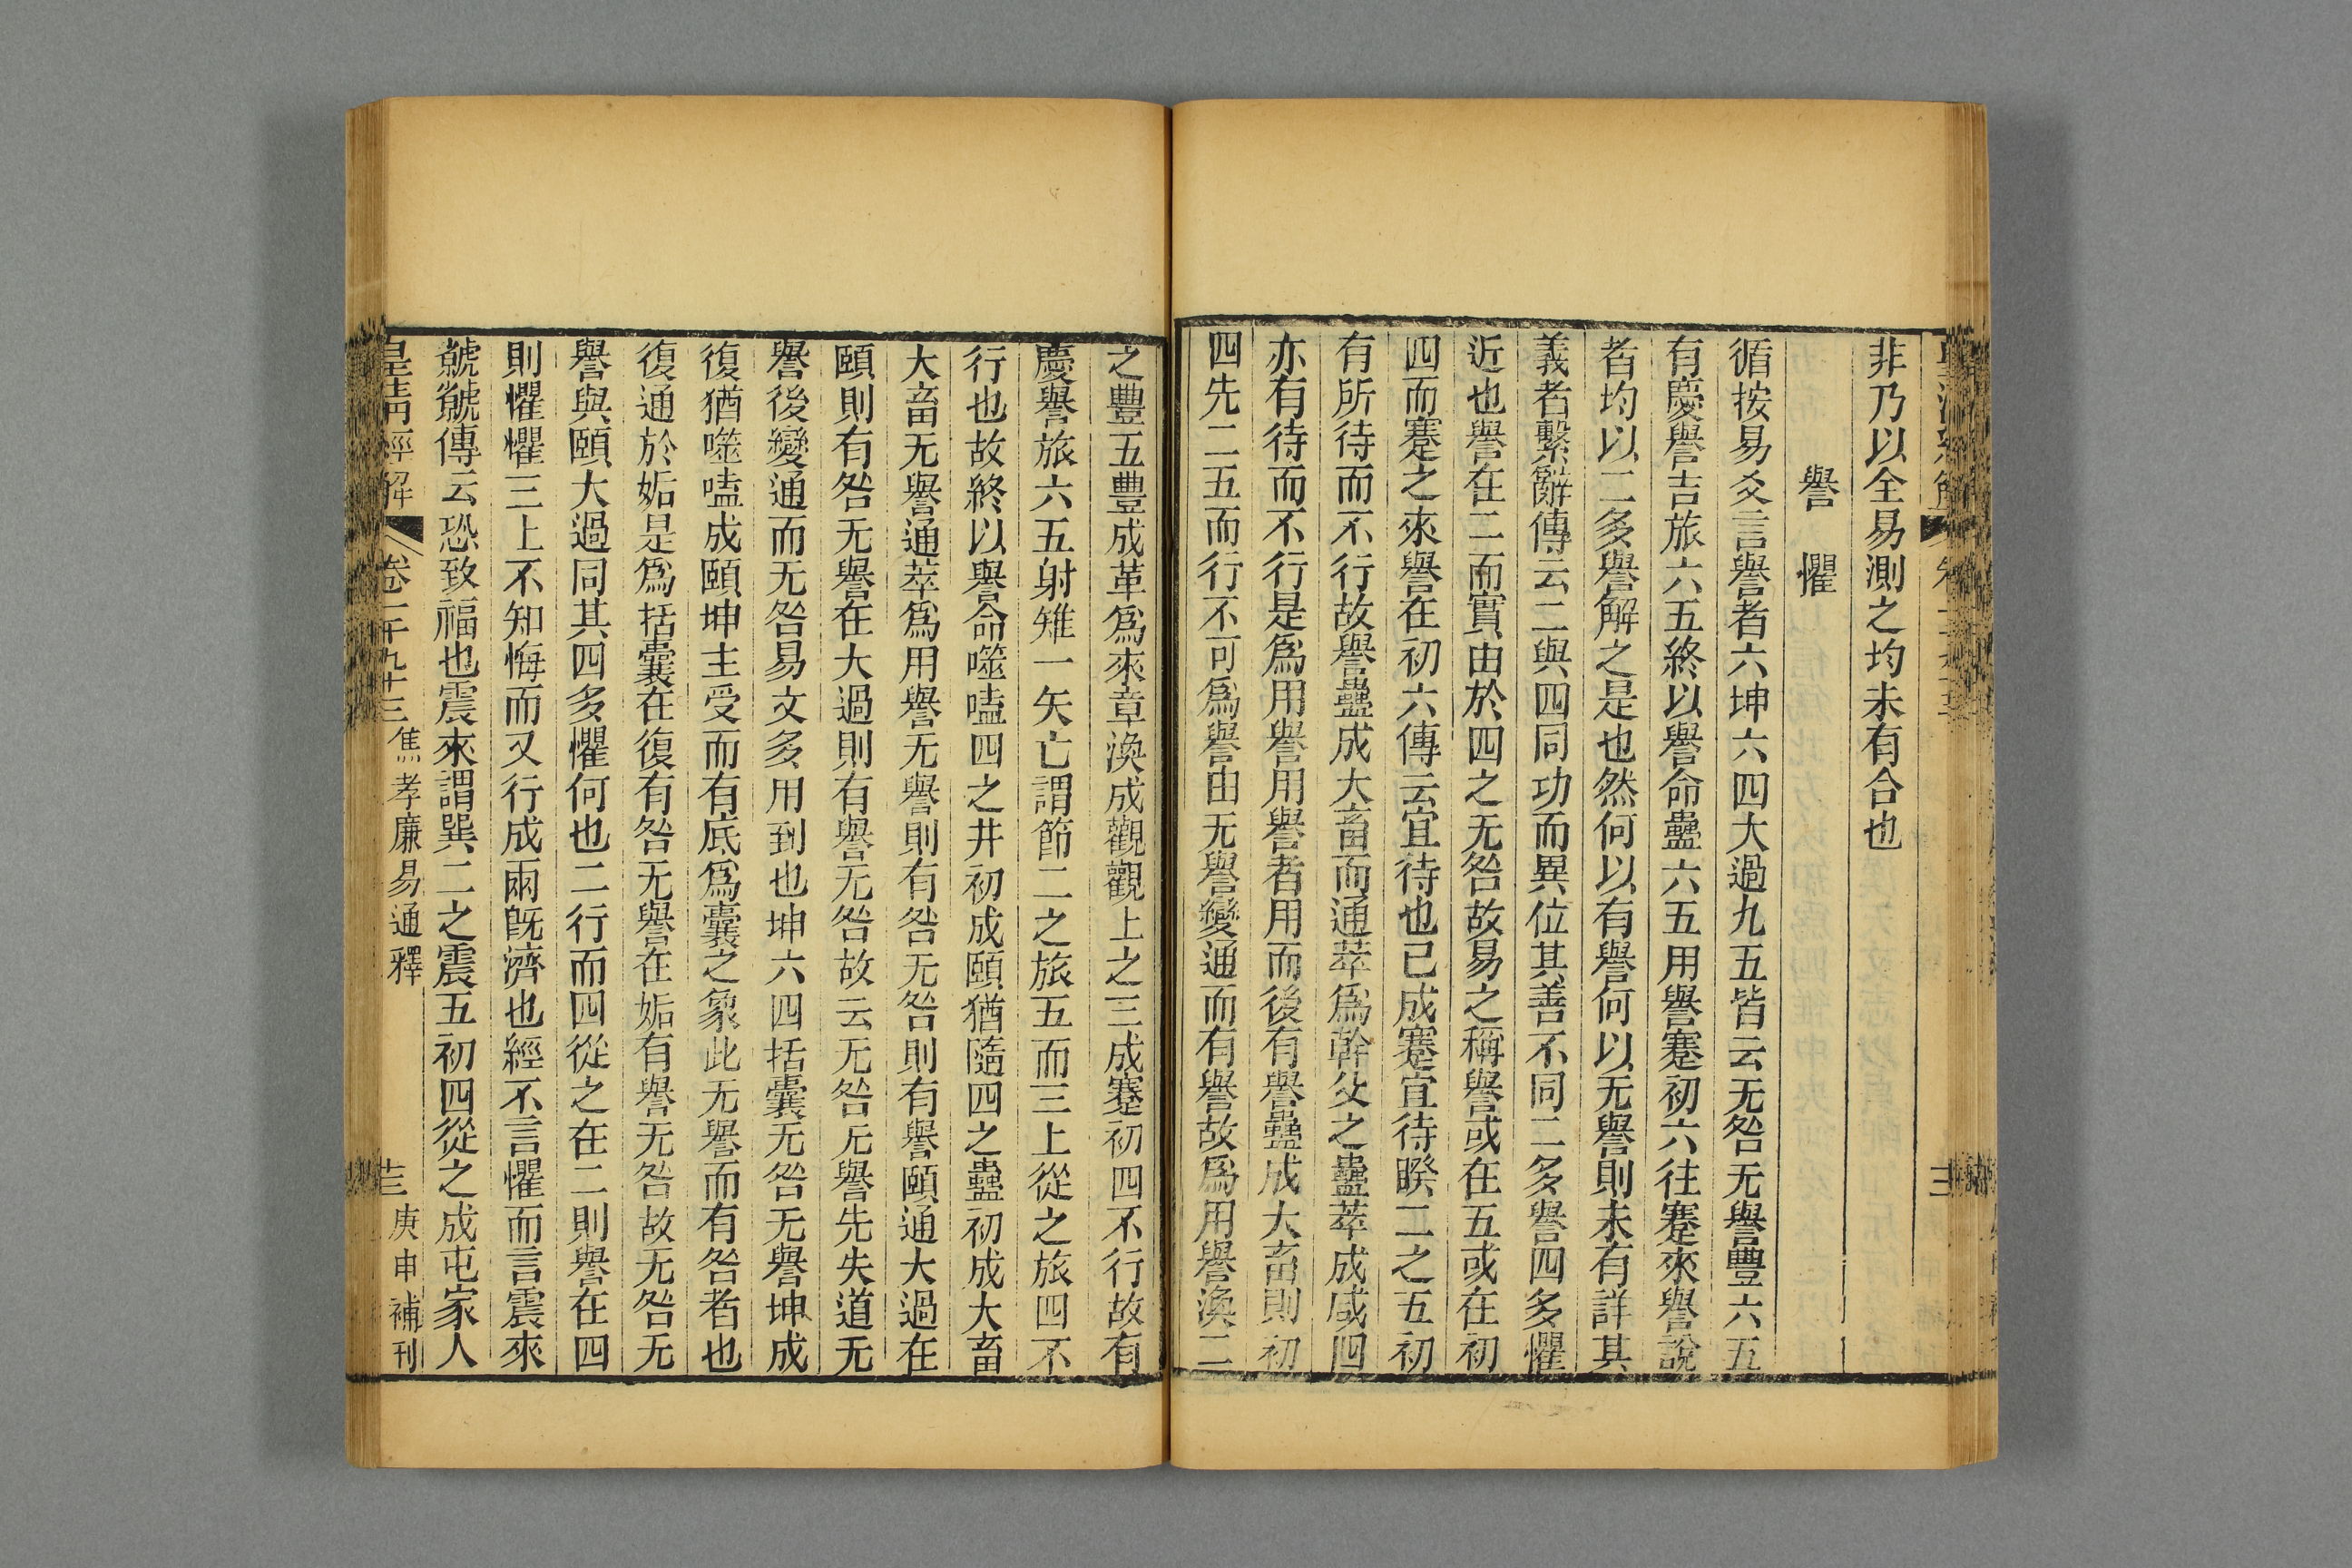 非乃以全易測之均未有合也
譽 懼
循按易爻言譽者六坤六四大過九五皆云无咎无譽豐六五
有慶譽吉旅六五終以譽命蠱六五用譽蹇初六往蹇來譽說
者均以二多譽解之是也然何以有譽何以无譽則未有詳其
義者繫辭傳云二與四同功而異位其善不同二多譽四多懼
近也譽在二而實由於四之无咎故易之稱譽或在五或在初
四而蹇之來譽在初六傳云宜待也已成蹇宜待睽二之五初
有所待而不行故譽蠱成大畜而通萃爲幹父之蠱萃成咸四
亦有待而不行是爲用譽用譽者用而後有譽蠱成大畜則初
四先二五而行不可爲譽由无譽變通而有譽故爲用譽渙二
之豐五豐成革爲來章渙成觀觀上之三成蹇初四不行故有
慶譽旅六五射雉一矢亡謂節二之旅五而三上從之旅四不
行也故終以譽命噬嗑四之井初成頤猶隨四之蠱初成大畜
大畜无譽通萃爲用譽无譽則有咎无咎則有譽頤通大過在
頤則有咎无譽在大過則有譽无咎故云无咎无譽先失道无
譽後變通而无咎易文多用到也坤六四括囊无咎无譽坤成
復猶噬嗑成頤坤主受而有底爲囊之象此无譽而有咎者也
復通於姤是爲括囊在復有咎无譽在姤有譽无咎故无咎无
譽與頤大過同其四多懼何也二行而四從之在二則譽在四
則懼懼三上不知悔而又行成兩旣濟也經不言懼而言震來
虩虩傳云恐致福也震來謂巽二之震五初四從之成屯家人
皇淸經解 卷一千九十三 焦孝廉易通釋 庚申補刊